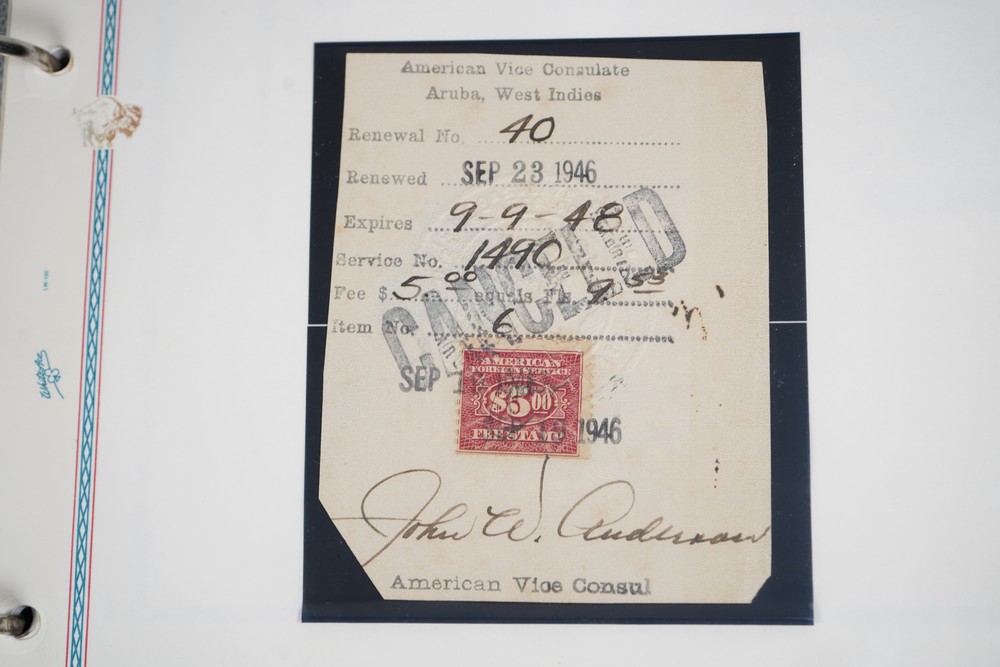 American Vice Consulate
Aruba, West Indies
Renewal No. 40
Renewed SEP 23 1946
Expires 9-9-48
Service No. 1490
Fee $ 5.00 equals Fls. 9.55
Item No. 6
CANCELED
SEP
AMERICAN
FOREIGN SERVICE
$5.00
FEE STAMP
1946
John W. Anderson
American Vice Consul